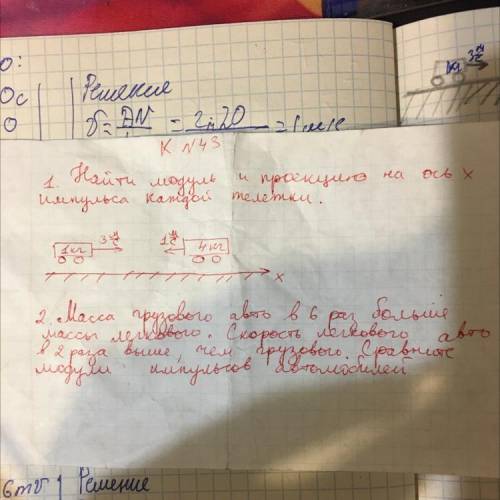 0:
0с
0
Решение
3 м/с
1кг
К №43
1. Найти модуль и проекцию на ось x
импульса каждой тележки.
1кг 3 м/с 1 м/с 4кг
x
2. Масса грузового авто в 6 раз больше
массы легкового. Скорость легкового авто
в 2 раза выше, чем грузового. Сравните
модули импульсов автомобилей
6mv Решение